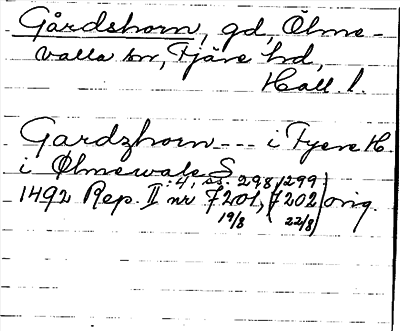 Gårdshorn, gd, Ölme-
valla sn, Fjäre hd,
Hall. l.
Gardzhorn --- i Fyere H.
i Ølmewale S
:4, ss. 298, 299
1492 Rep. II nr 7201, 7202 orig.
19/8 22/8